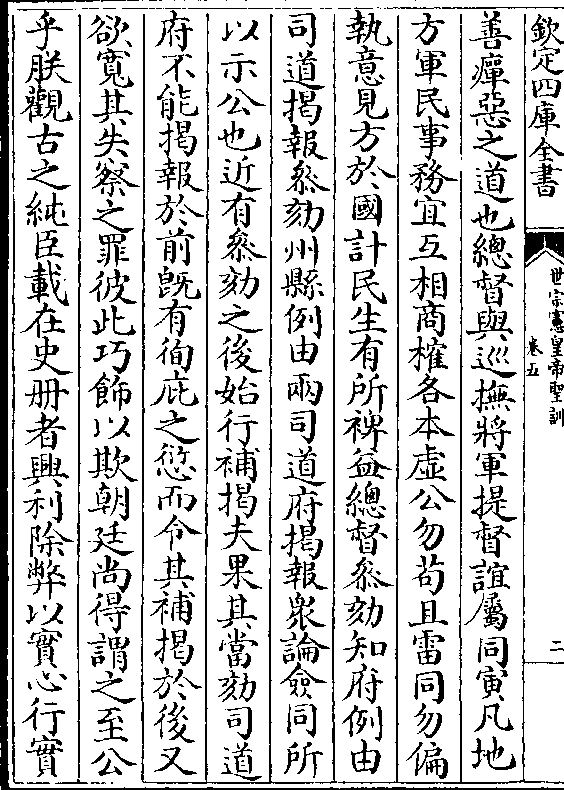 欽定四庫全書
世宗憲皇帝聖訓
卷五
二
善癉惡之道也總督與巡撫將軍提督誼屬同寅凡地
方軍民事務宜互相商榷各本虛公勿苟且雷同勿偏
執意見方於國計民生有所裨益總督叅劾知府例由
司道揭報叅劾州縣例由兩司道府揭報衆論僉同所
以示公也近有叅劾之後始行補揭夫果其當劾司道
府不能揭報於前旣有徇庇之愆而令其補揭於後又
欲寬其失察之罪彼此巧飾以欺朝廷尚得謂之至公
乎朕觀古之純臣載在史册者興利除弊以實心行實